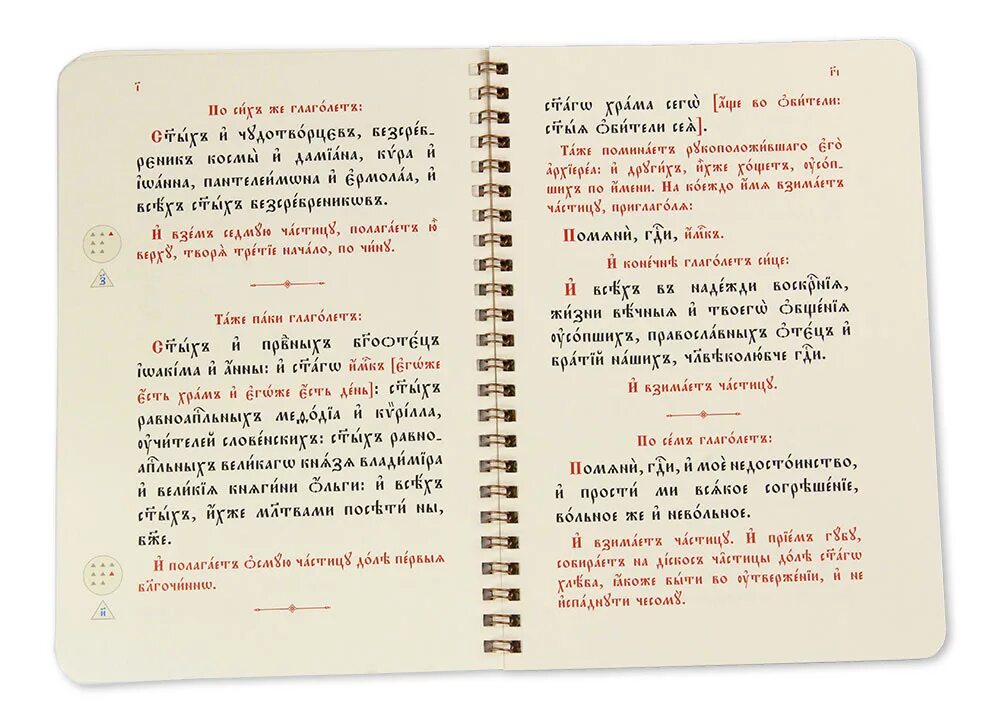 і҃
По си́хъ же глаго́летъ:
Ст҃ы́хъ и҆ чꙋдотво́рцєвъ, безсре́б-
рєникъ космы̀ и҆ дамїа́на, кѵ́ра и҆
і҆ѡа́нна, пантелеи́мѡна и҆ є҆рмола́а, и҆
всѣ́хъ ст҃ы́хъ безсре́бреникѡвъ.
И҆ взе́мъ седмꙋ́ю части́цꙋ, полага́етъ ю҆̀
верхꙋ̀, творѧ̀ тре́тїе нача́ло, по чи́нꙋ.
з҃
Та́же па́ки глаго́летъ:
Ст҃ы́хъ и҆ првⷣныхъ бг҃оѻте́цъ
і҆ѡакі́ма и҆ а҆́нны: и҆ ст҃а́гѡ и҆м҃къ [є҆гѡ́же
є҆́сть хра́мъ и҆ є҆гѡ́же є҆́сть де́нь]: ст҃ы́хъ
равноап҃льныхъ меѳо́дїа и҆ кѷрі́лла,
ᲂу҆чи́телей слове́нскихъ: ст҃ы́хъ равно-
ап҃льныхъ вели́кагѡ кнѧ́зѧ влади́мїра
и҆ вели́кїѧ кнѧги́ни ѻ҆́льги: и҆ всѣ́хъ
ст҃ы́хъ, и҆́хже мл҃твами посѣтѝ ны̀,
бж҃е.
И҆ полага́етъ ѻ҆смꙋ́ю части́цꙋ до́лѣ пе́рвыѧ
бл҃гочи́ннѡ.
и҃
г҃і
ст҃а́гѡ хра́ма сегѡ̀ [а҆́ще во ѻ҆би́тели:
ст҃ы́ѧ ѻ҆би́тели сеѧ̀].
Та́же помина́етъ рꙋкоположи́вшаго є҆го̀
а҆рхїере́а: и҆ дрꙋги́хъ, и҆̀хже хо́щетъ, ᲂу҆со́п-
шихъ по и҆́мени. На ко́еждо и҆́мѧ взима́етъ
части́цꙋ, приглаго́лѧ:
Помѧнѝ, гдⷭ҇и, и҆м҃къ.
И҆ коне́чнѣ глаго́летъ си́це:
И҆ всѣ́хъ въ наде́жди воскрⷭ҇нїѧ,
жи́зни вѣ́чныѧ и҆ твоегѡ̀ ѻ҆бще́нїѧ
ᲂу҆со́пшихъ, правосла́вныхъ ѻ҆тє́цъ и҆
бра́тїй на́шихъ, чл҃вѣколю́бче гдⷭ҇и.
И҆ взима́етъ части́цꙋ.
По се́мъ глаго́летъ:
Помѧнѝ, гдⷭ҇и, и҆ моѐ недосто́инство,
и҆ простѝ ми всѧ́кое согрѣше́нїе,
во́льное же и҆ нево́льное.
И҆ взима́етъ части́цꙋ. И҆ прїе́мъ гꙋ́бꙋ,
собира́етъ на ді́скосѣ части́цы до́лѣ ст҃а́гѡ
хлѣ́ба, ꙗ҆́коже бы́ти во ᲂу҆твержде́нїи, и҆ не
и҆спа́днꙋти чесомꙋ̀.